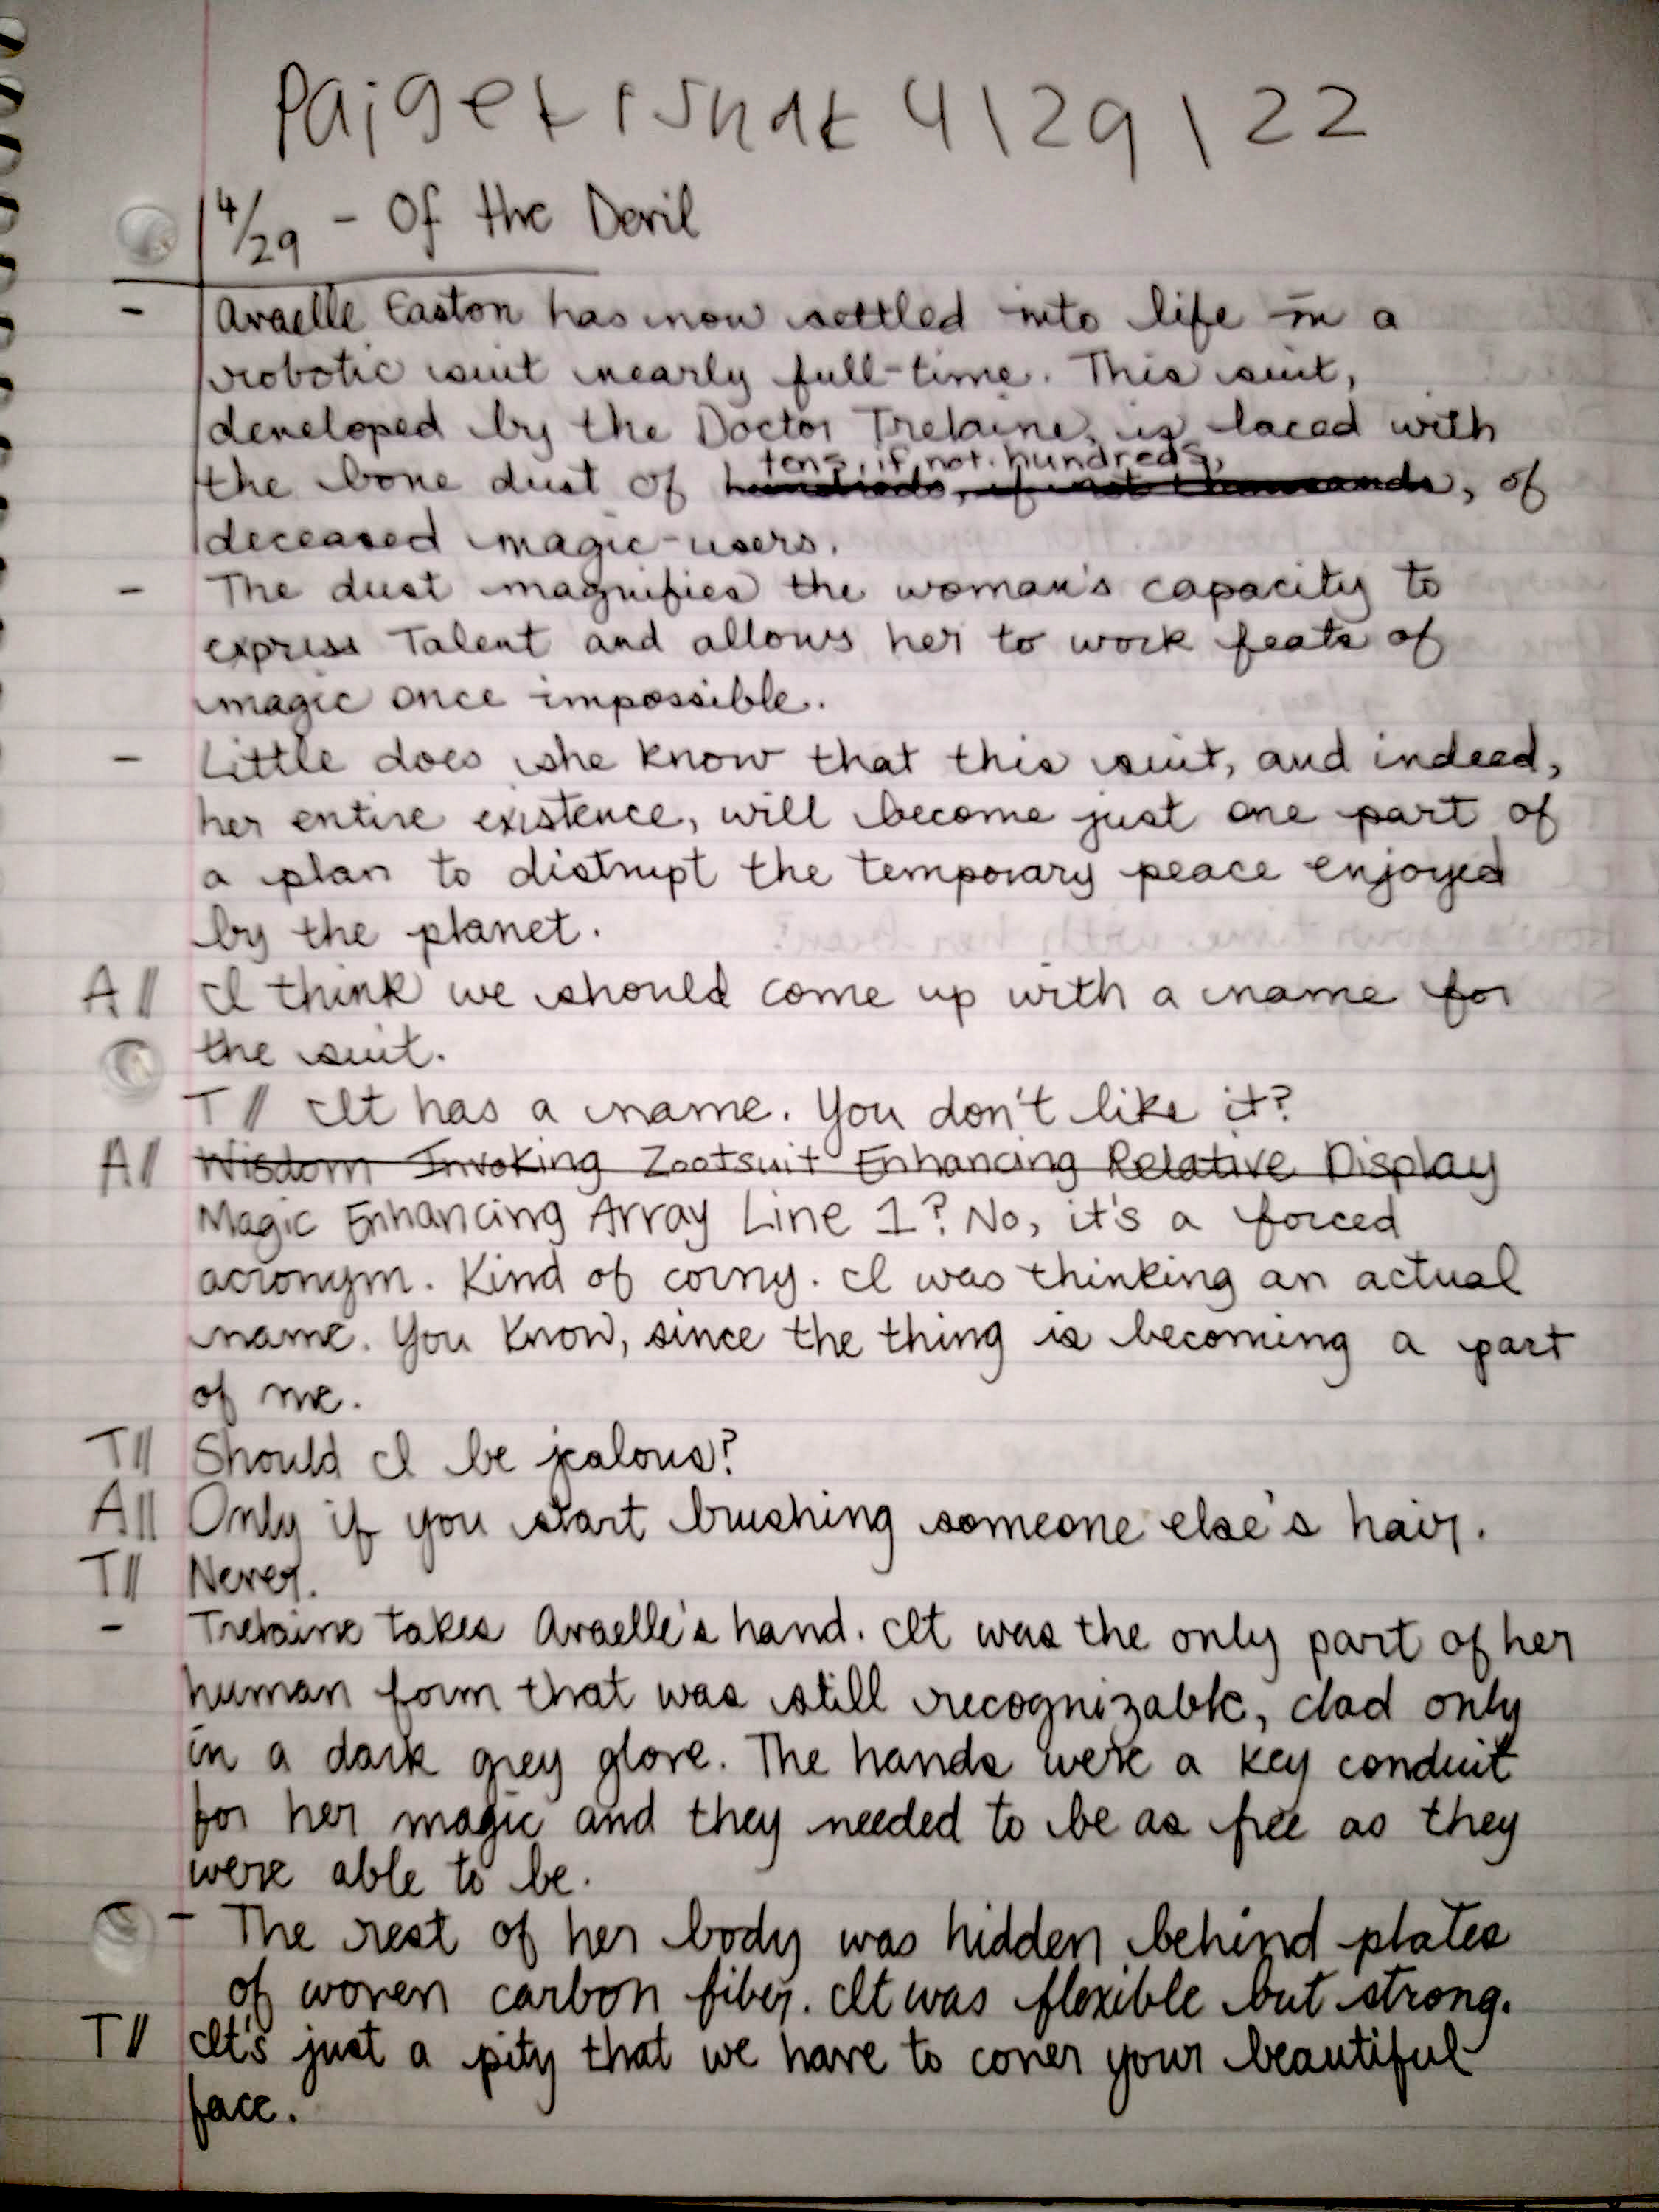 4/29 - Of the Devil
- Avaelle Easton has now settled into life in a
robotic suit nearly full-time. This suit,
developed by the Doctor Trelaine, is laced with
tens, if not hundreds,
the bone dust of hundreds, if not thousands, of
deceased magic-users.
- The dust magnifies the woman's capacity to
express Talent and allows her to work feats of
magic once impossible.
- Little does she know that this suit, and indeed,
her entire existence, will become just one part of
a plan to distrupt the temporary peace enjoyed
by the planet.
A// I think we should come up with a name for
the suit.
T// It has a name. You don't like it?
A// Wisdom Invoking Zootsuit Enhancing Relative Display
Magic Enhancing Array Line 1? No, it's a forced
acronym. Kind of corny. I was thinking an actual
name. You know, since the thing is becoming a part
of me.
T// Should I be jealous?
A// Only if you start brushing someone else's hair.
T// Never.
- Trelaine takes Avaelle's hand. It was the only part of her
human form that was still recognizable, clad only
in a dark grey glove. The hands were a key conduit
for her magic and they needed to be as free as they
were able to be.
- The rest of her body was hidden behind plates
of woven carbon fiber. It was flexible but strong.
T// It's just a pity that we have to cover your beautiful
face.